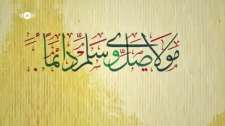 مولاي صل وسلم دائما